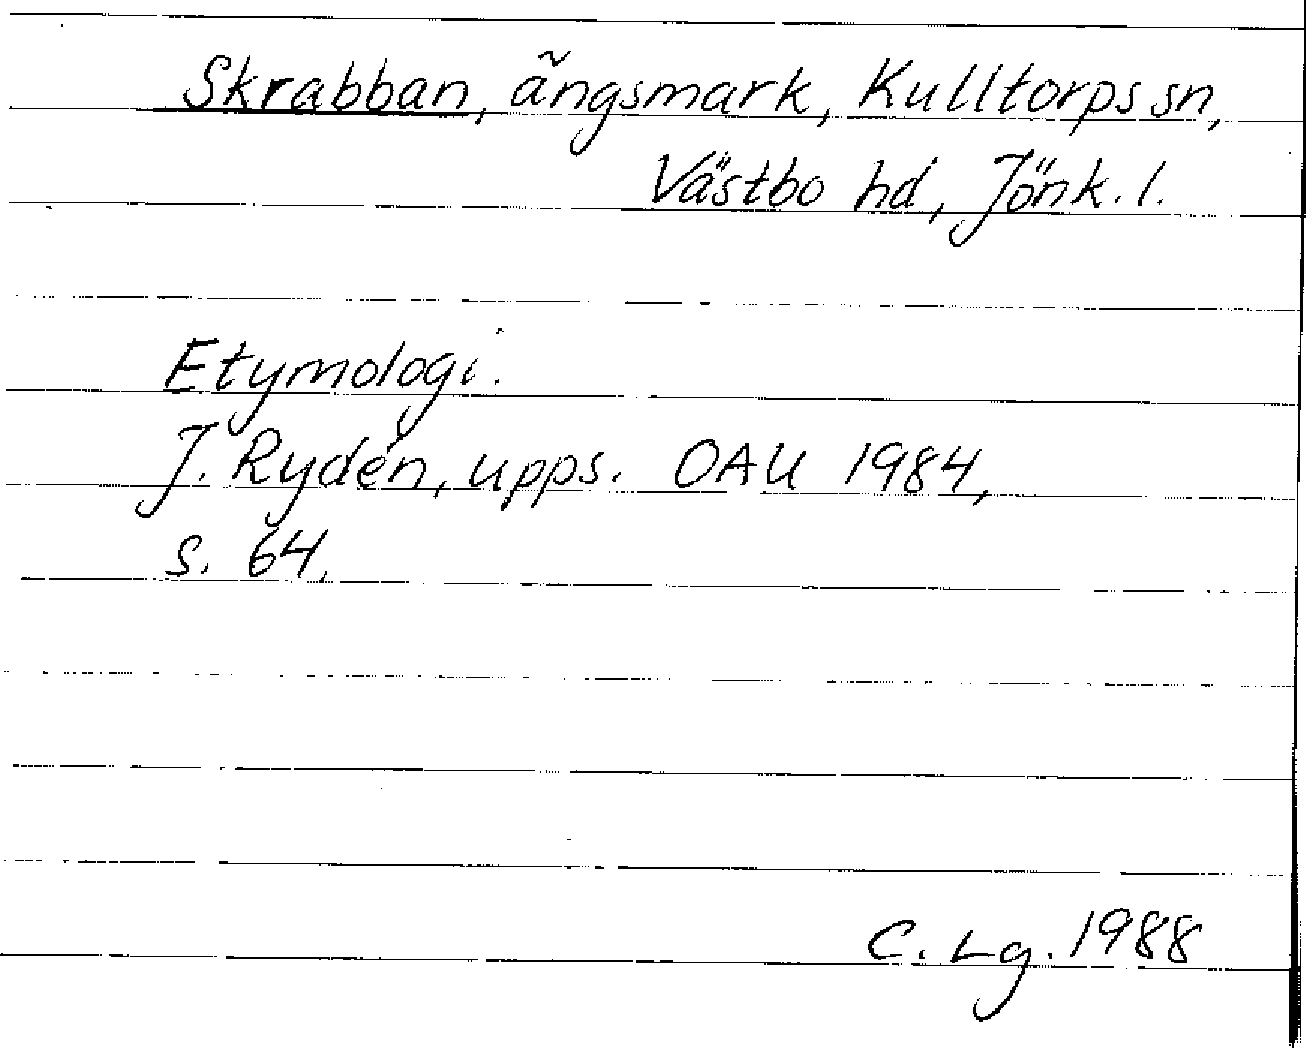 Skrabban, ängsmark, Kulltorps sn,
Västbo hd, Jönk. l.
Etymologi.
J. Rydén, upps. OAU 1984,
s. 64.
C. Lg. 1988